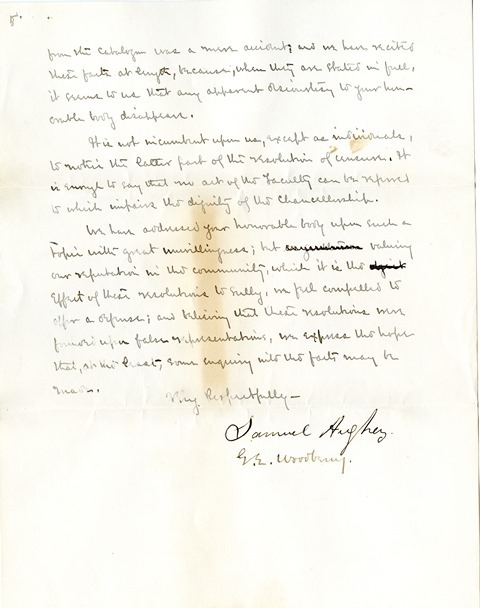 5.
from the Catalogue was a mere accident; and we have recited
these facts at length, because, when they are stated in full,
it seems to us that any apparent discourtesy to your hon-
orable body disappears.
It is not incumbent upon us, except as individuals,
to notice the latter part of the resolution of censure. It
is enough to say that no act of the Faculty can be referred
to which impairs the dignity of the Chancellorship.
We have addressed your honorable body upon such a
topic with great unwillingness; but valuing
our reputation in the community, which it is the
effect of these resolutions to sully, we feel compelled to
offer a defense; and believing that these resolutions were
founded upon false representations, we express the hope
that, at the least, some enquiry into the facts may be
made.
Very Respectfully—
Samuel Aughey.
G.E. Woodberry.